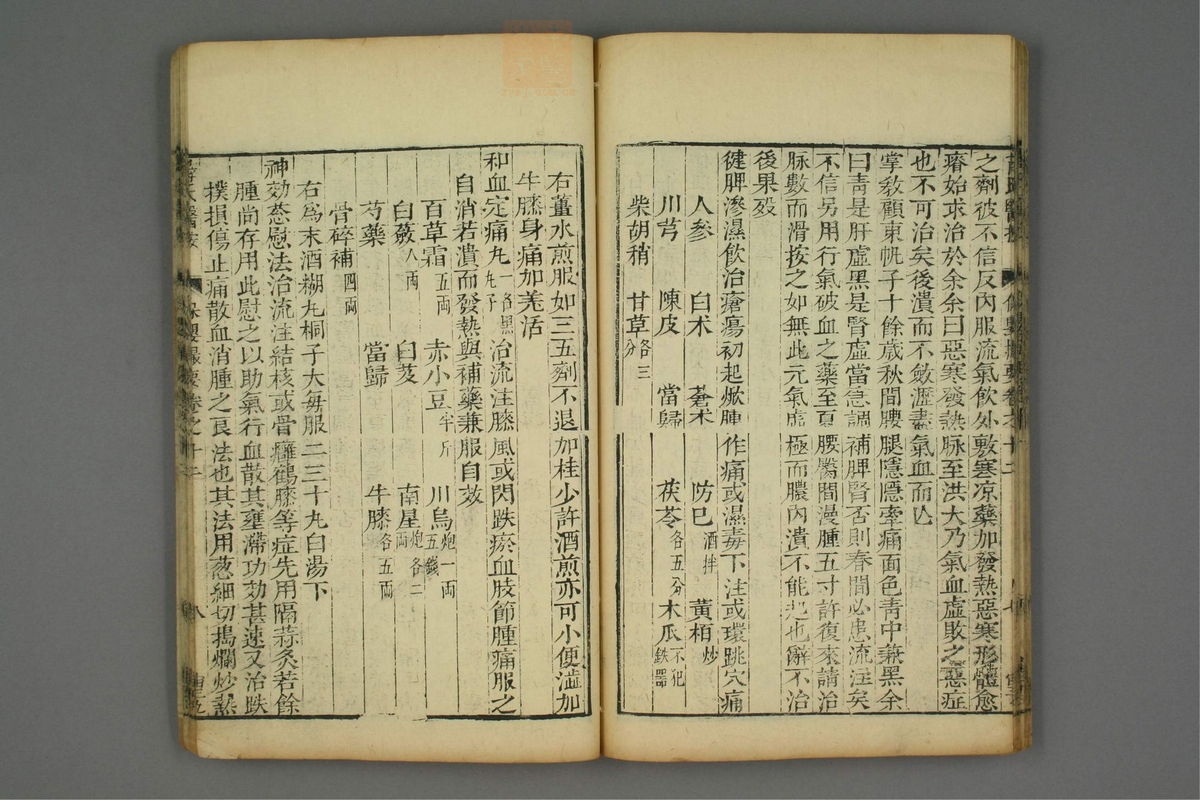 之劑彼不信反內服流氣飲外敷寒凉藥加發熱惡寒形體愈
瘠始求治於余余曰惡寒發熱脉至洪大乃氣血虛敗之惡症
也不可治矣後潰而不斂瀝盡氣血而亾
掌敎顧東帆子十餘歲秋間腰腿隱隱牽痛面色靑中兼黑余
曰靑是肝虛黑是腎虛當急調補脾腎否則春間必患流注矣
不信另用行氣破血之藥至夏腰胯間漫腫五寸許復來請治
脉數而滑按之如無此元氣虛極而膿內潰不能起也辭不治
後果殁
健脾滲濕飲治瘡瘍初起焮腫作痛或濕毒下注或環跳穴痛
人參 白术 蒼朮 防巳酒拌 黃栢炒
川芎 陳皮 當歸 茯苓各五分 木瓜不犯鉄器
柴胡稍 甘草各三分
右薑水煎服如三五劑不退加桂少許酒煎亦可小便澁加
牛膝身痛加羌活
和血定痛丸一名黑丸子 治流注膝風或閃跌瘀血肢節腫痛服之
自消若潰而發熱與補藥兼服自效
百草霜五兩 赤小豆半斤 川烏炮一兩五錢
白蘞八兩 白芨 南星炮各二兩
芍藥 當歸 牛膝各五兩
骨碎補四兩
右爲末酒糊丸桐子大每服二三十丸白湯下
神効葱慰法治流注結核或骨癰鶴膝等症先用隔蒜灸若餘
腫尚存用此慰之以助氣行血散其壅滯功効甚速又治跌
撲損傷止痛散血消腫之良法也其法用葱細切搗爛炒熱
卷之十二
八